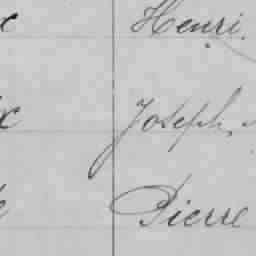 Henri
Joseph
Pierre